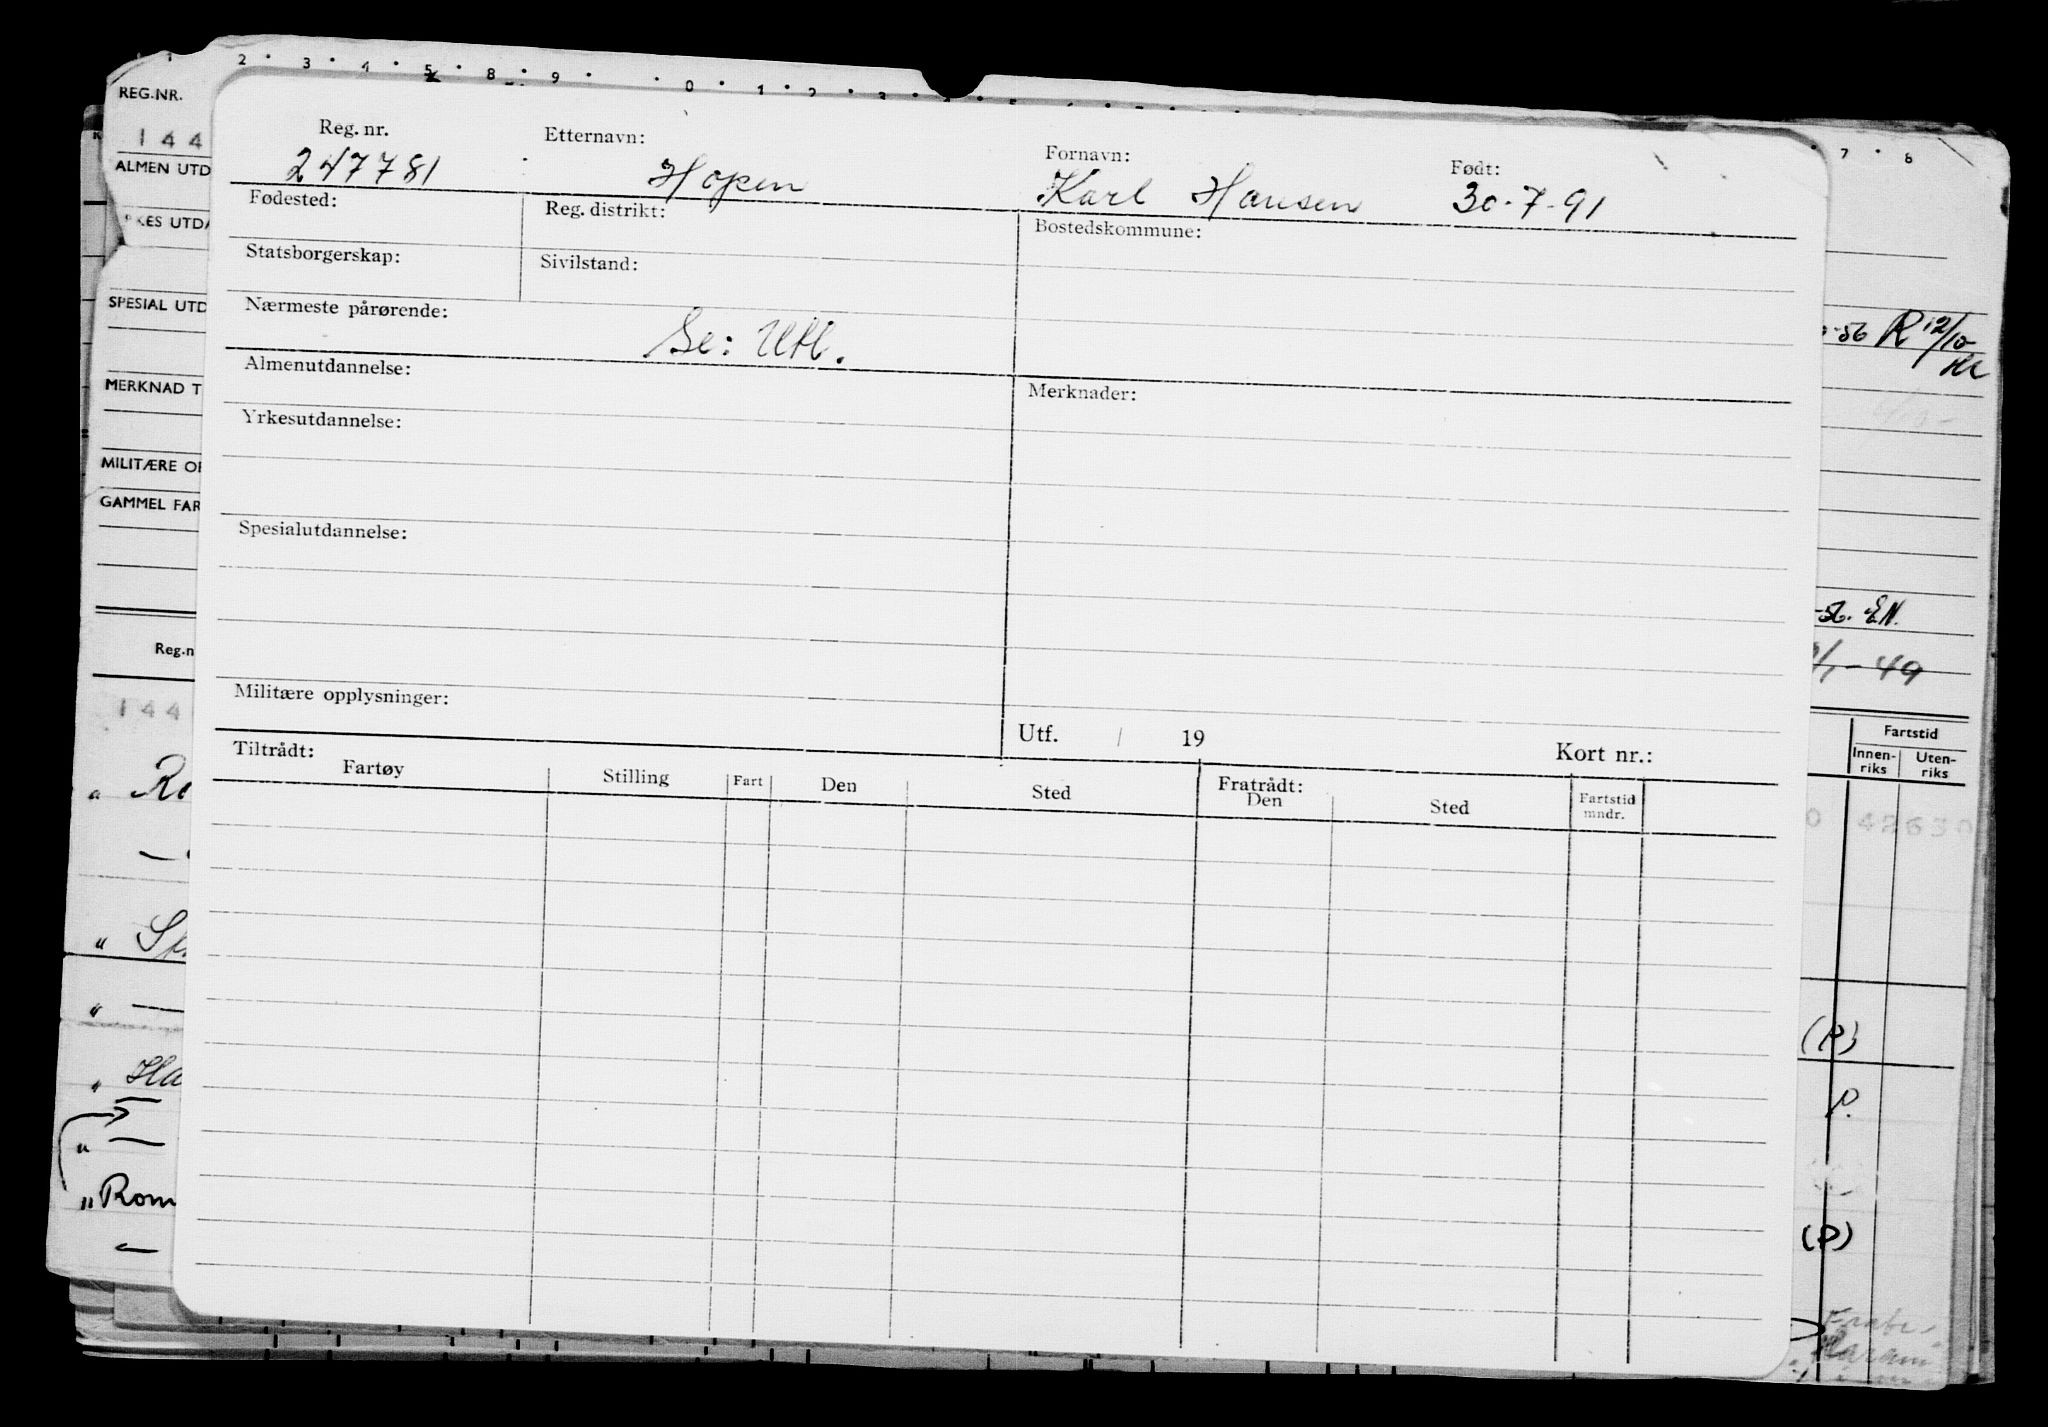 2 · 3 · 4 · 5 · 8 · 9 · · 0 · 1 · 2 · 3
REG.NR.
144
ALMEN UTD
KES UTDA
SPESIAL UTD
MERKNAD T
MILITÆRE OP
GAMMEL FAR
Reg.n
144
Sp
Ha
" Rom
Reg. nr. Etternavn: Fornavn: Født:
247781 Hopen Karl Hansen 30-7-91
Fødested: Reg. distrikt: Bostedskommune:
Statsborgerskap: Sivilstand:
Nærmeste pårørende:
Se: Utl.
Almenutdannelse: Merknader:
Yrkesutdannelse:
Spesialutdannelse:
Militære opplysninger:
Utf. / 19 Kort nr.:
Tiltrådt: Fratrådt:
Fartøy Stilling Fart Den Sted Den Sted Fartstid mndr.
7 · 8
-56 R 12/10
-56. EN.
/1-49
Fartstid
Innen-
riks
Uten-
riks
0 42630
(P)
P.
(P)